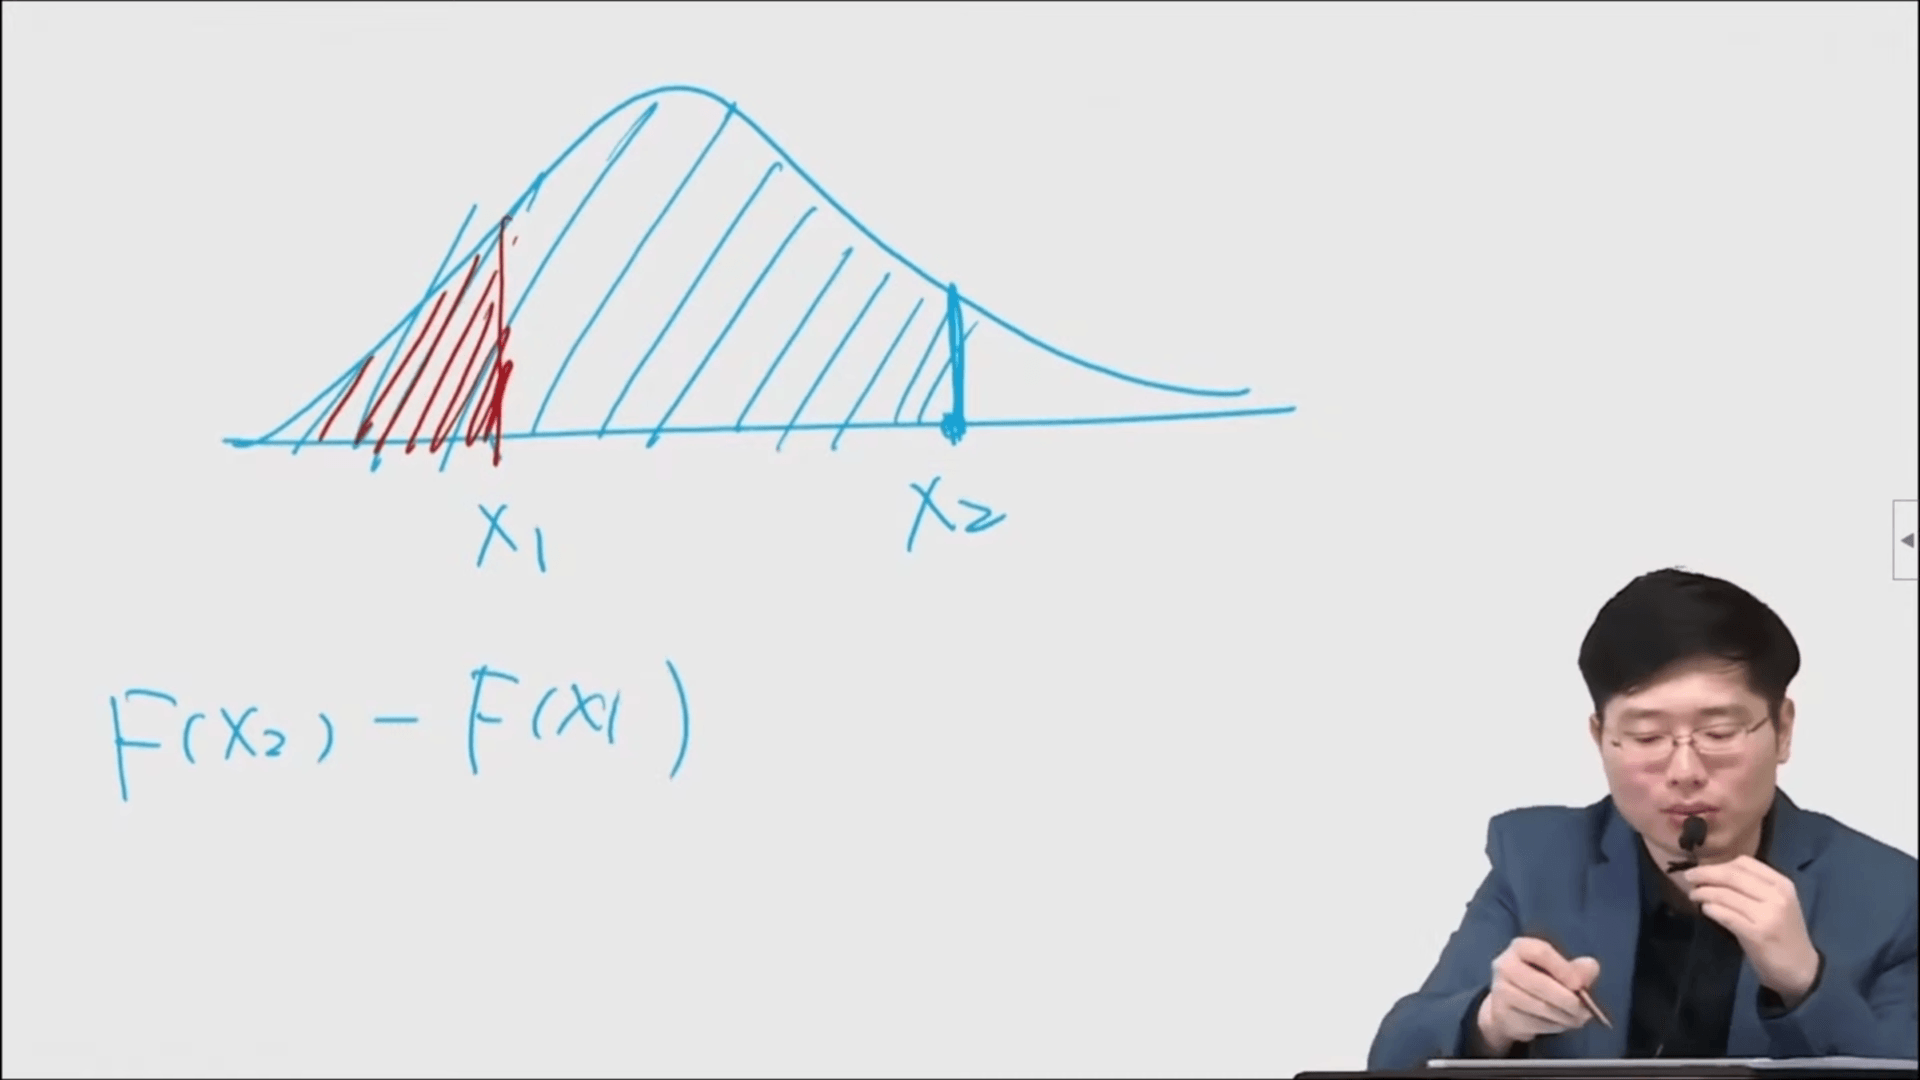 X₁
X₂
F(X₂) - F(X₁)